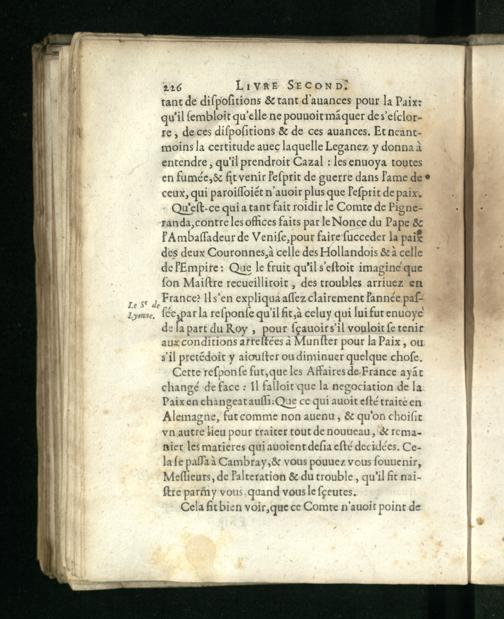 226 LIVRE SECOND.
tant de dispositions & tant d'auances pour la Paix:
qu'il sembloit qu'elle ne pouuoit mãquer de s'esclor-
re, de ces dispositions & de ces auances. Et neant-
moins la certitude auec laquelle Leganez y donna à
entendre, qu'il prendroit Cazal : les enuoya toutes
en fumée, & fit venir l'esprit de guerre dans l'ame de
ceux, qui paroissoiẽt n'auoir plus que l'esprit de paix.
Qu'est-ce qui a tant fait roidir le Comte de Pigne-
randa, contre les offices faits par le Nonce du Pape &
l'Ambassadeur de Venise, pour faire succeder la paix
des deux Couronnes, à celle des Hollandois & à celle
de l'Empire : Que le fruit qu'il s'estoit imaginé que
son Maistre recueilliroit, des troubles arriuez en
France? Il s'en expliqua assez clairement l'année pas-
Le Sr de
Lyonne.
sée, par la response qu'il fit, à celuy qui lui fut enuoyé
de la part du Roy, pour sçauoir s'il vouloit se tenir
aux conditions arrestées à Munster pour la Paix, ou
s'il pretẽdoit y aiouster ou diminuer quelque chose.
Cette response fut, que les Affaires de France ayãt
changé de face : Il falloit que la negociation de la
Paix en changeat aussi: Que ce qui auoit esté traité en
Alemagne, fut comme non auenu, & qu'on choisit
vn autre lieu pour traiter tout de nouueau, & rema-
nier les matieres qui auoient desia esté decidées. Ce-
la se passa à Cambray, & vous pouuez vous souuenir,
Messieurs, de l'alteration & du trouble, qu'il fit nai-
stre parmy vous quand vous le sçeutes.
Cela fit bien voir, que ce Comte n'auoit point de